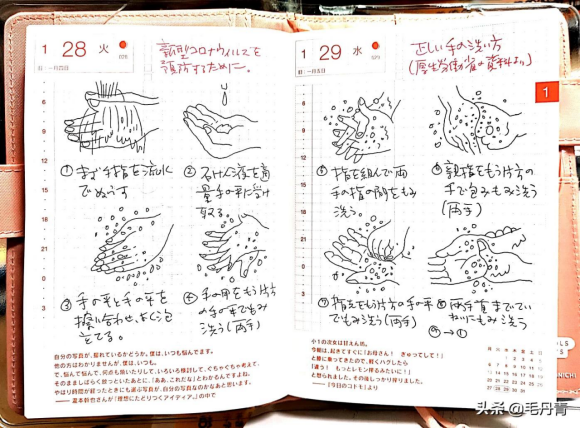 1
28
火
028
一月四日
新型コロナウィルスを
予防するために。
① まず手指を流水
でぬらす
② 石けん液を適
量手の平に受け
取る
③ 手の平と手の平を
擦り合わせ、よく泡
立てる。
④ 手の甲をもう片方
の手の平でもみ
洗う(両手)
自分の写真が、優れているかどうか。僕は、いつも悩んでます。
他の方はわかりませんが、僕は、いつも。
で、悩んで悩んで、何点も焼いたりして、いろいろ検討して、ぐちゃぐちゃ考えて、
そのまましばらく放っといたあとに、「ああ、これだな」とわかるんですよね。
やはり時間が経ったときにも選ぶ写真が、自分の写真なのかなあと思います。
の中で
1
29
水
029
一月五日
正しい手の洗い方
(厚生労働省の資料より)
1
⑤ 指を組んで両
手の指の間をもみ
洗う。
⑥ 親指をもう片方の
手で包みもみ洗う
(両手)
⑦ 指先をもう片方の手の平
でもみ洗う(両手)
⑧ 両手首までてい
ねいにもみ洗う
小1の次女は甘えん坊。
今朝は、起きてすぐに「お母さん! ぎゅってして!」
と膝に乗ってきたので、軽くハグしたら
「違う! もっとレモン搾るみたいに!」
と怒られました。その後しっかり搾りました。
──『今日のコドモ』より
頭条 @毛丹青